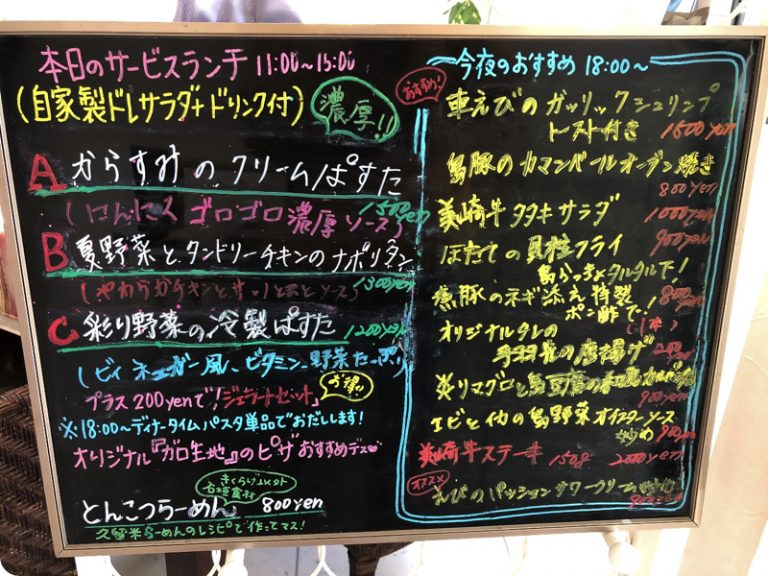 本日のサービスランチ 11:00〜15:00
(自家製ドレサラダ+ドリンク付)
濃厚!!
A からすみのクリームぱすた
1500yen
(にんにくゴロゴロ濃厚ソース)
B 夏野菜とタンドリーチキンのナポリタン
1300yen
(やわらかチキンと
C 彩り野菜の冷製ぱすた 1200yen
(ビィネェガー風、ビタミン、野菜たっぷり
プラス200yenで!「ジェラートセット」
お得!!
※18:00〜ディナータイムパスタ単品でおだしします!
オリジナル『ガロ生地』のピザおすすめデス♡
とんこつらーめん 800yen
久留米らーめんのレシピで作ってマス!
今夜のおすすめ 18:00〜
おすすめ!
車えびのガッリックシュリンプ
トースト付き 1500yen
島豚のカマンベールオーブン焼き
800yen
美崎牛タタキサラダ 1000yen
ほたての貝柱フライ 900yen
島らっきょタルタルで!
島豚のネギ添え特製
ポン酢で! 800yen
オリジナルタレの (1本)
手羽先の唐揚げ
炙りマグロと島豆腐の和風カルパッチョ
900yen
エビとイカの島野菜オイスターソース
炒め 900yen
美崎牛ステーキ 150g 2000yen
オススメ
えびのパッションサワークリーム